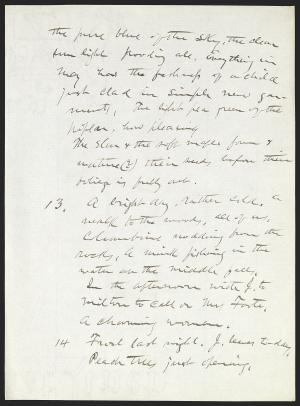 the pure blue of the sky, the clear
sun light flooding all. Everything in
May has the freshness of a child
just clad in simple new gar-
ments. The light pea green of the
poplar, how pleasing
The Elm & the soft maple form &
mature(?) their seed, before their
foliage is fully out.
13. A bright day, rather cold. A
walk to the woods, all of us.
Columbine nodding from the
rocks, A mink fishing in the
water on the middle fall.
In the afternoon with J. to
Milton to call on Mrs Foote.
A charming woman.
14 Frost last night. J. leaves to-day.
Peach trees just opening.